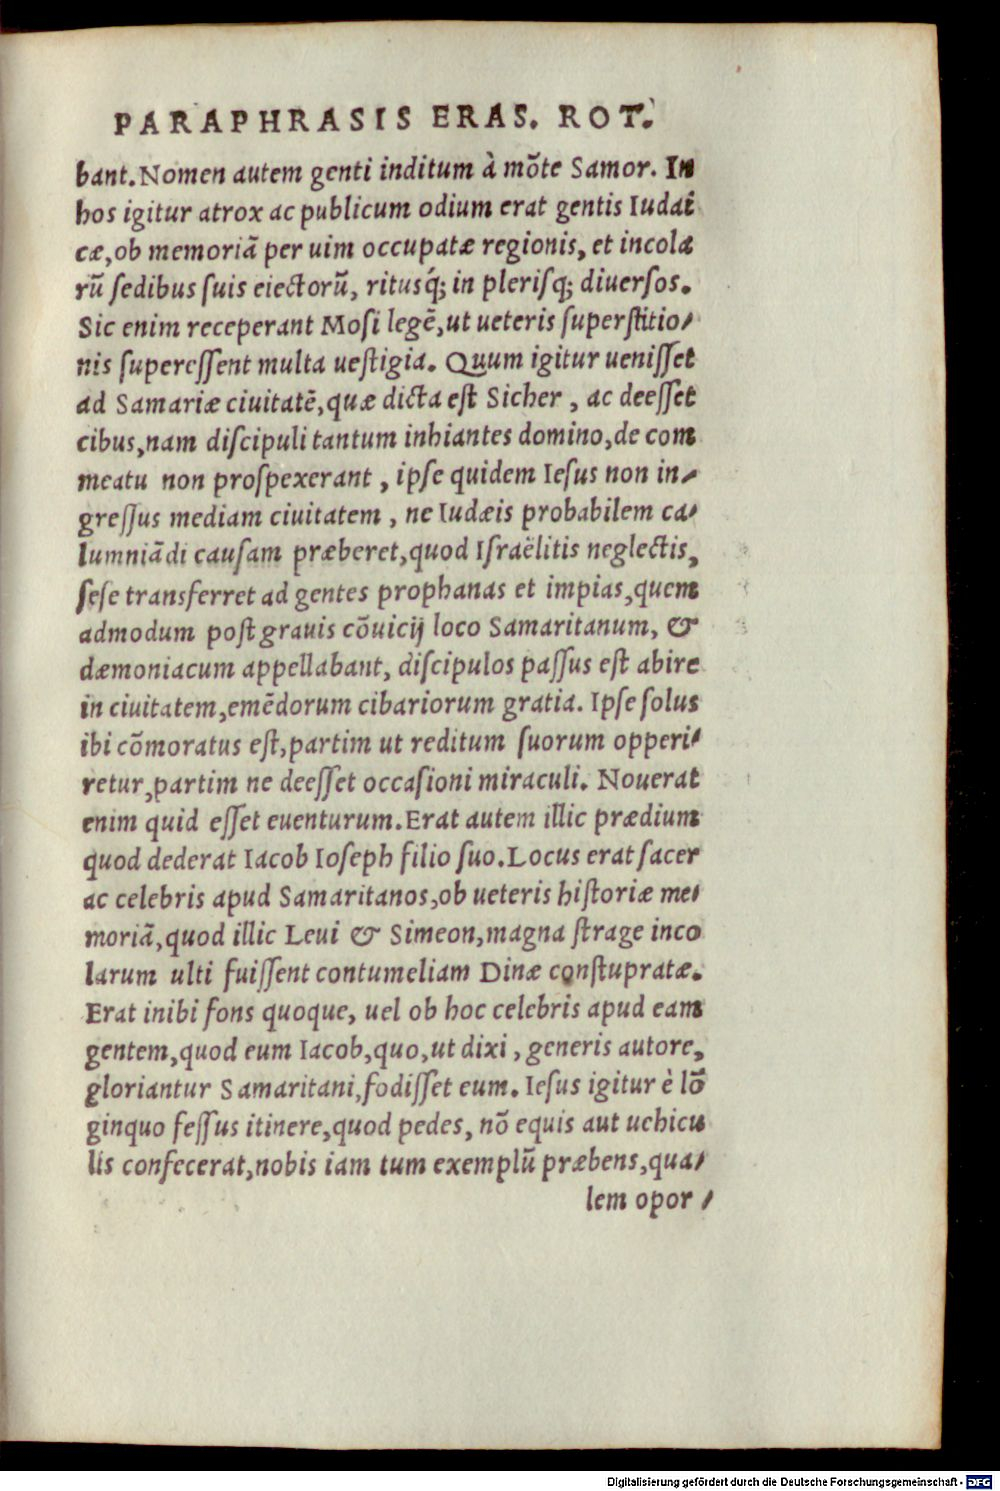 PARAPHRASIS ERAS. ROT.
bant. Nomen autem genti inditum à mõte Samor. In
hos igitur atrox ac publicum odium erat gentis Iudai
cæ, ob memoriã per uim occupatæ regionis, et incola
rũ ſedibus ſuis eiectorũ, ritusq́; in pleriſq; diuerſos.
Sic enim receperant Moſi legẽ, ut ueteris ſuperſtitio-
nis ſupereſſent multa ueſtigia. Quum igitur ueniſſet
ad Samariæ ciuitatẽ, quæ dicta eſt Sicher, ac deeſſet
cibus, nam diſcipuli tantum inhiantes domino, de com
meatu non proſpexerant, ipſe quidem Ieſus non in-
greſſus mediam ciuitatem, ne Iudæis probabilem ca-
lumniãdi cauſam præberet, quod Iſraëlitis neglectis,
ſeſe transferret ad gentes prophanas et impias, quem
admodum poſt grauis cõuicij loco Samaritanum, &
dæmoniacum appellabant, diſcipulos paſſus eſt abire
in ciuitatem, emẽdorum cibariorum gratia. Ipſe ſolus
ibi cõmoratus eſt, partim ut reditum ſuorum opperi-
retur, partim ne deeſſet occaſioni miraculi. Nouerat
enim quid eſſet euenturum. Erat autem illic prædium
quod dederat Iacob Ioſeph filio ſuo. Locus erat ſacer
ac celebris apud Samaritanos, ob ueteris hiſtoriæ me-
moriã, quod illic Leui & Simeon, magna ſtrage inco
larum ulti fuiſſent contumeliam Dinæ conſtupratæ.
Erat inibi fons quoque, uel ob hoc celebris apud eam
gentem, quod eum Iacob, quo, ut dixi, generis autore,
gloriantur Samaritani, fodiſſet eum. Ieſus igitur è lõ
ginquo feſſus itinere, quod pedes, nõ equis aut uehicu
lis confecerat, nobis iam tum exemplũ præbens, qua-
lem opor-
Digitalisierung gefördert durch die Deutsche Forschungsgemeinschaft - DFG